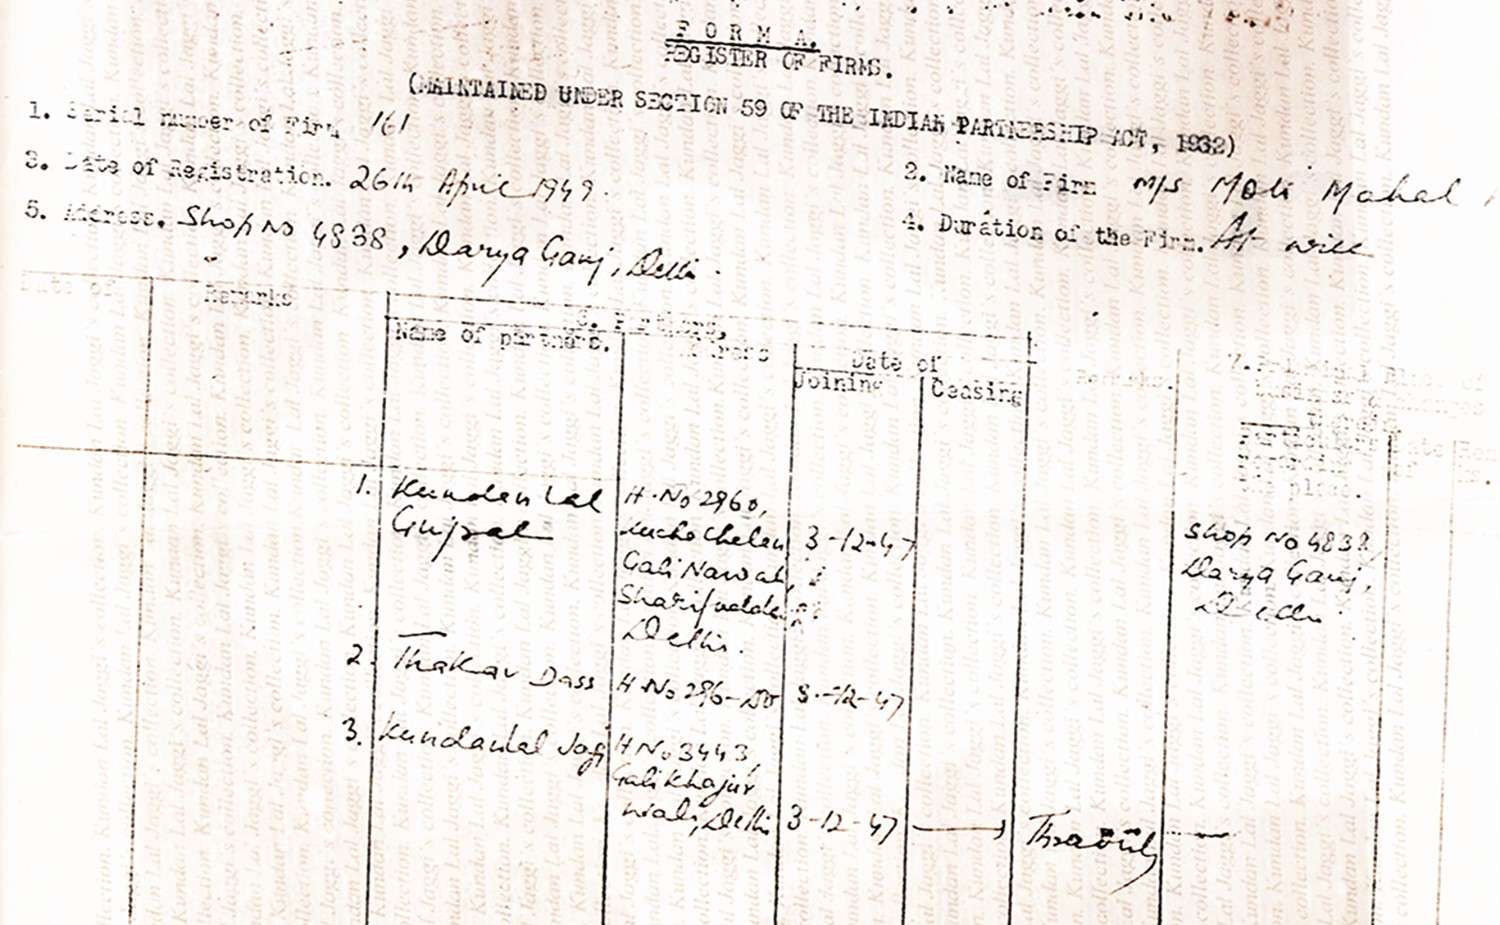 FORM A.
REGISTER OF FIRMS.
(MAINTAINED UNDER SECTION 59 OF THE INDIAN PARTNERSHIP ACT, 1932)
1. Serial number of Firm 161
2. Name of Firm M/s Moti Mahal
3. Date of Registration. 26th April 1949.
4. Duration of the Firm. At will
5. Address. Shop No 4838, Darya Ganj, Delhi.
Date of
Remarks
6. Partners,
Name of partners.
Address
Date of
Joining
Ceasing
Remarks.
7. Principal Place of
business
Particulars
the place.
Date
of
1. Kundan Lal
Gujral
H. No 2960,
Kucha Chelan
Gali Nawab,
Delhi.
3-12-47
Shop No 4838,
Darya Ganj,
Delhi
2. Thakar Dass
H. No 296-
3-12-47
3. Kundanlal Jagi
H No 3443,
Gali Khajur
Wali, Delhi
3-12-47